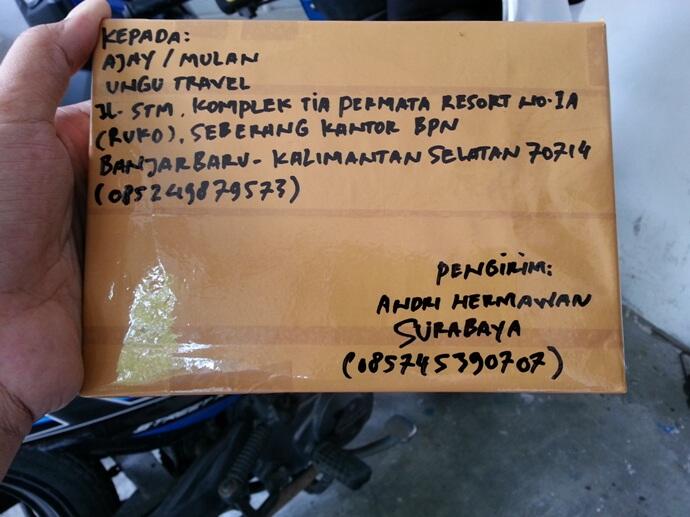 KEPADA:
AJAY / MULAN
UNGU TRAVEL
JL. STM. KOMPLEK TIA PERMATA RESORT NO.1A
(RUKO), SEBERANG KANTOR BPN
BANJARBARU - KALIMANTAN SELATAN 70714
(085249879573)
PENGIRIM:
ANDRI HERMAWAN
SURABAYA
(085745390707)